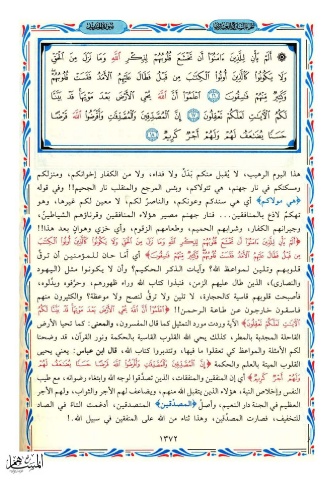 سورة الحديد
۞ أَلَمْ يَأْنِ لِلَّذِينَ ءَامَنُوٓا أَن تَخْشَعَ قُلُوبُهُمْ لِذِكْرِ ٱللَّهِ وَمَا نَزَلَ مِنَ ٱلْحَقِّ
وَلَا يَكُونُوا كَٱلَّذِينَ أُوتُوا ٱلْكِتَٰبَ مِن قَبْلُ فَطَالَ عَلَيْهِمُ ٱلْأَمَدُ فَقَسَتْ قُلُوبُهُمْ
وَكَثِيرٌ مِّنْهُمْ فَٰسِقُونَ ١٦ ٱعْلَمُوٓا أَنَّ ٱللَّهَ يُحْيِ ٱلْأَرْضَ بَعْدَ مَوْتِهَا قَدْ بَيَّنَّا
لَكُمُ ٱلْآيَٰتِ لَعَلَّكُمْ تَعْقِلُونَ ١٧ إِنَّ ٱلْمُصَّدِّقِينَ وَٱلْمُصَّدِّقَٰتِ وَأَقْرَضُوا ٱللَّهَ قَرْضًا
حَسَنًا يُضَٰعَفُ لَهُمْ وَلَهُمْ أَجْرٌ كَرِيمٌ ١٨
هذا اليوم الرهيب، لا يُقبل منكم بَدَلٌ ولا فداء، ولا من الكفار إخوانكم، ومنزلكم
ومسكنكم في نار جهنم، هي تتولاكم، وبئس المرجع والمنقلب نار الجحيم!! وفي قوله
﴿هي مولاكم﴾ أي هي سندكم وعونكم، والناصرُ لكم، لا معين لكم غيرها، وهو
تهكمٌ لاذع بالمنافقين... فنار جهنم مصير هؤلاء المنافقين وقرناؤهم الشياطينُ،
وجيرانهم الكفار، وشرابهم الحميم، وطعامهم الزقوم، وأي خزي وهوان بعد هذا!!
﴿أَلَمْ يَأْنِ لِلَّذِينَ ءَامَنُوٓا أَن تَخْشَعَ قُلُوبُهُمْ لِذِكْرِ ٱللَّهِ وَمَا نَزَلَ مِنَ ٱلْحَقِّ وَلَا يَكُونُوا كَٱلَّذِينَ أُوتُوا ٱلْكِتَٰبَ
مِن قَبْلُ فَطَالَ عَلَيْهِمُ ٱلْأَمَدُ فَقَسَتْ قُلُوبُهُمْ وَكَثِيرٌ مِّنْهُمْ فَٰسِقُونَ﴾ أي أما حان للمؤمنين أن ترقَّ
قلوبهم وتلين لمواعظ الله؟ وآيات الذكر الحكيم؟ وأن لا يكونوا مثل (اليهود
والنصارى)، الذين طال عليهم الزمن، فنبذوا كتاب الله وراء ظهورهم، وحرَّفوه وبدَّلوه،
فأصبحت قلوبهم قاسية كالحجارة، لا تلين ولا ترقُّ لنصح ولا موعظة؟ والكثيرون منهم
فاسقون خارجون عن طاعة الرحمن!! ﴿ٱعْلَمُوٓا أَنَّ ٱللَّهَ يُحْيِ ٱلْأَرْضَ بَعْدَ مَوْتِهَا قَدْ بَيَّنَّا لَكُمُ
ٱلْآيَٰتِ لَعَلَّكُمْ تَعْقِلُونَ﴾ الآية وردت مورد التمثيل كما قال المفسرون، والمعنى: كما تحيا الأرض
القاحلة المجدبة بالمطر، كذلك يحيي الله القلوب القاسية بالحكمة ونور القرآن، قد وضحنا
لكم الأمثلة والمواعظ كي تعقلوا ما فيها، وتتدبروا كتاب الله، قال ابن عباس: يعني يحيي
القلوب الميتة بالعلم والحكمة ﴿إِنَّ ٱلْمُصَّدِّقِينَ وَٱلْمُصَّدِّقَٰتِ وَأَقْرَضُوا ٱللَّهَ قَرْضًا حَسَنًا يُضَٰعَفُ لَهُمْ
وَلَهُمْ أَجْرٌ كَرِيمٌ﴾ أي إن المنفقين والمنفقات، الذين تصدَّقوا لوجه الله وابتغاء رضوانه، مع طيب
النفس وإخلاص النية، هؤلاء الذين يتقبل الله منهم، ويضاعف لهم الأجر والثواب، ولهم الأجر
العظيم في الجنة دار النعيم، وأصلُ ﴿المصدِّقين﴾ المتصدقين، أدغمت التاءُ في الصاد
للتخفيف، فصارت المصدِّقين، وهذا ثناء من الله على المنفقين في سبيل الله.!
١٣٧٢